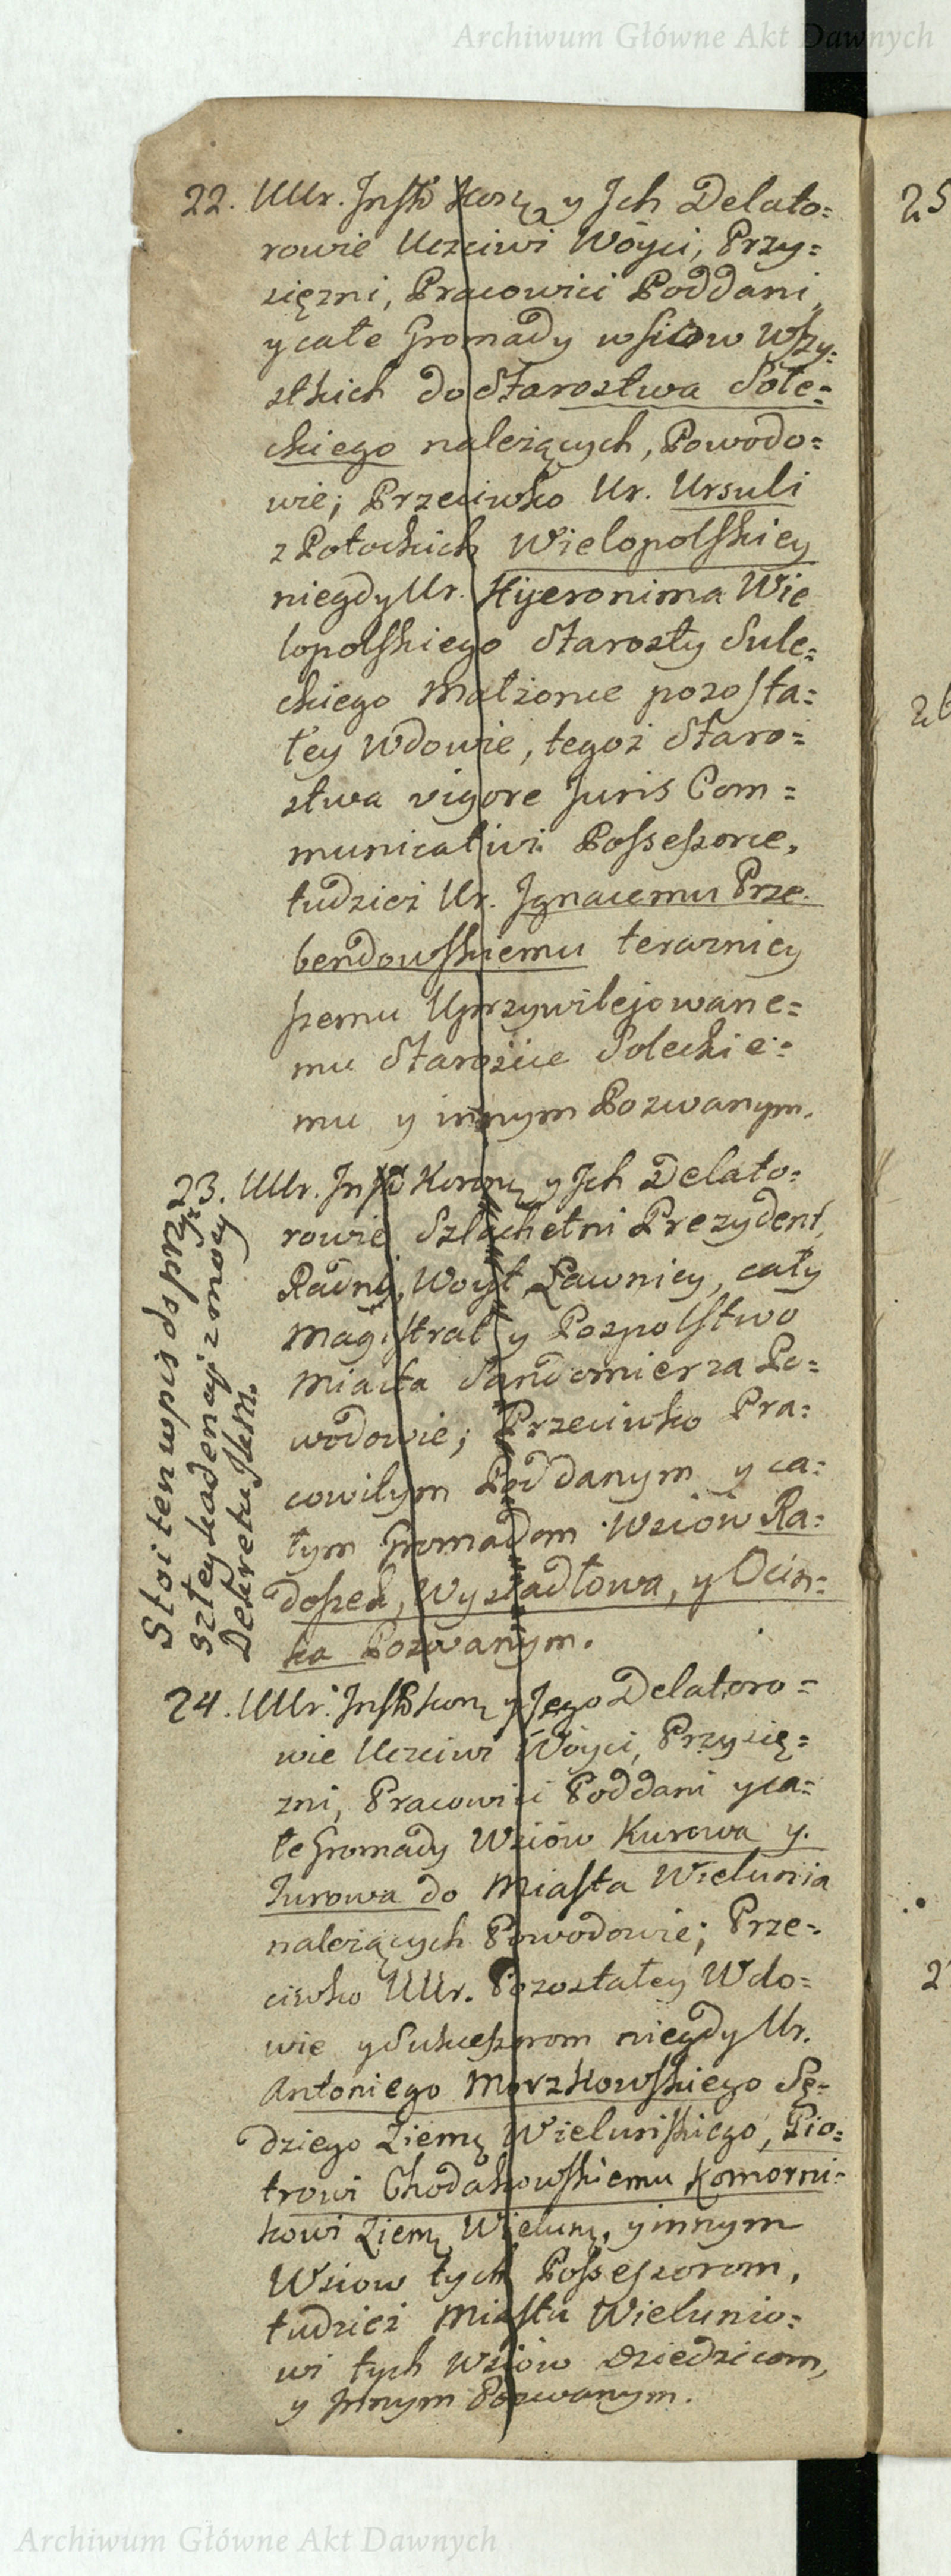 Archiwum Główne Akt Dawnych
22. UUr. Insti Koroñ y Ich Delato=
rowie Uczciwi Wóyci, Przy=
sięzni, Pracowici Poddani,
y całe Gromady wsiow wszy=
stkich do Starostwa Sole=
ckiego nalezących, Powodo=
wie; Przeciwko Ur. Ursuli
z Potockich Wielopolskiey
niegdy Ur. Hijeronima Wie
lopolskiego Starosty Sule=
ckiego Małzonce pozosta=
łey Wdowie, tegoz Staro=
stwa vigore Juris Com=
municativi Possessorce,
tudziez Ur. Ignacemu Prze.
bendowskiemu teraznicy
szemu Uprzywilejowane=
mu Staroscie Soleckie=
mu y innym Pozwanym.
23. UUr. Insti Koronę y Ich Delato=
rowie Szlachetni Prezydent,
Radni, Woyt, Ławnicy, cały
Magistrat y Pospolstwo
Miasta Sandomierza Po=
wodowie; Przeciwko Pra=
cowitym Poddanym y ca=
łym Gromadom Wsiów Ra=
doszek, Wysiadłowa, y Ocin=
ka Pozwanym.
Stoi ten wpis do przy=
szłey kadencyi z mocy
Dekretu
24. UUr. Insti Koroñ y Jego Delatoro=
wie Uczciwi Wóyci, Przysię=
zni, Pracowici Poddani y ca=
łe Gromady Wsiów Kurowa y.
Turowa do Miasta Wielunia
nalezących Powodowie; Prze=
ciwko UUr. Pozostałey Wdo=
wie y Sukcessorom niegdy Ur.
Antoniego Morzkowskiego Sę=
dziego Ziemę Wieluńskiego, Pio=
trowi Chodakowskiemu Komorni=
kowi Ziemę Wielunę, y innym
Wsiow tych Possessorom,
tudziez Miastu Wielunio=
wi tych Wsiów Dziedzicom,
y Innym Pozwanym.
25
26
2
Archiwum Główne Akt Dawnych